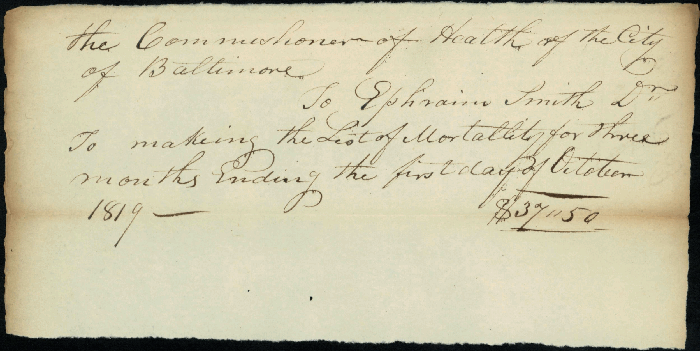 the Commissioners of Health of the City
of Baltimore
To Ephraim Smith Dr
To makeing the List of Mortallity for three
months Ending the first day of October
1819 — $37"50